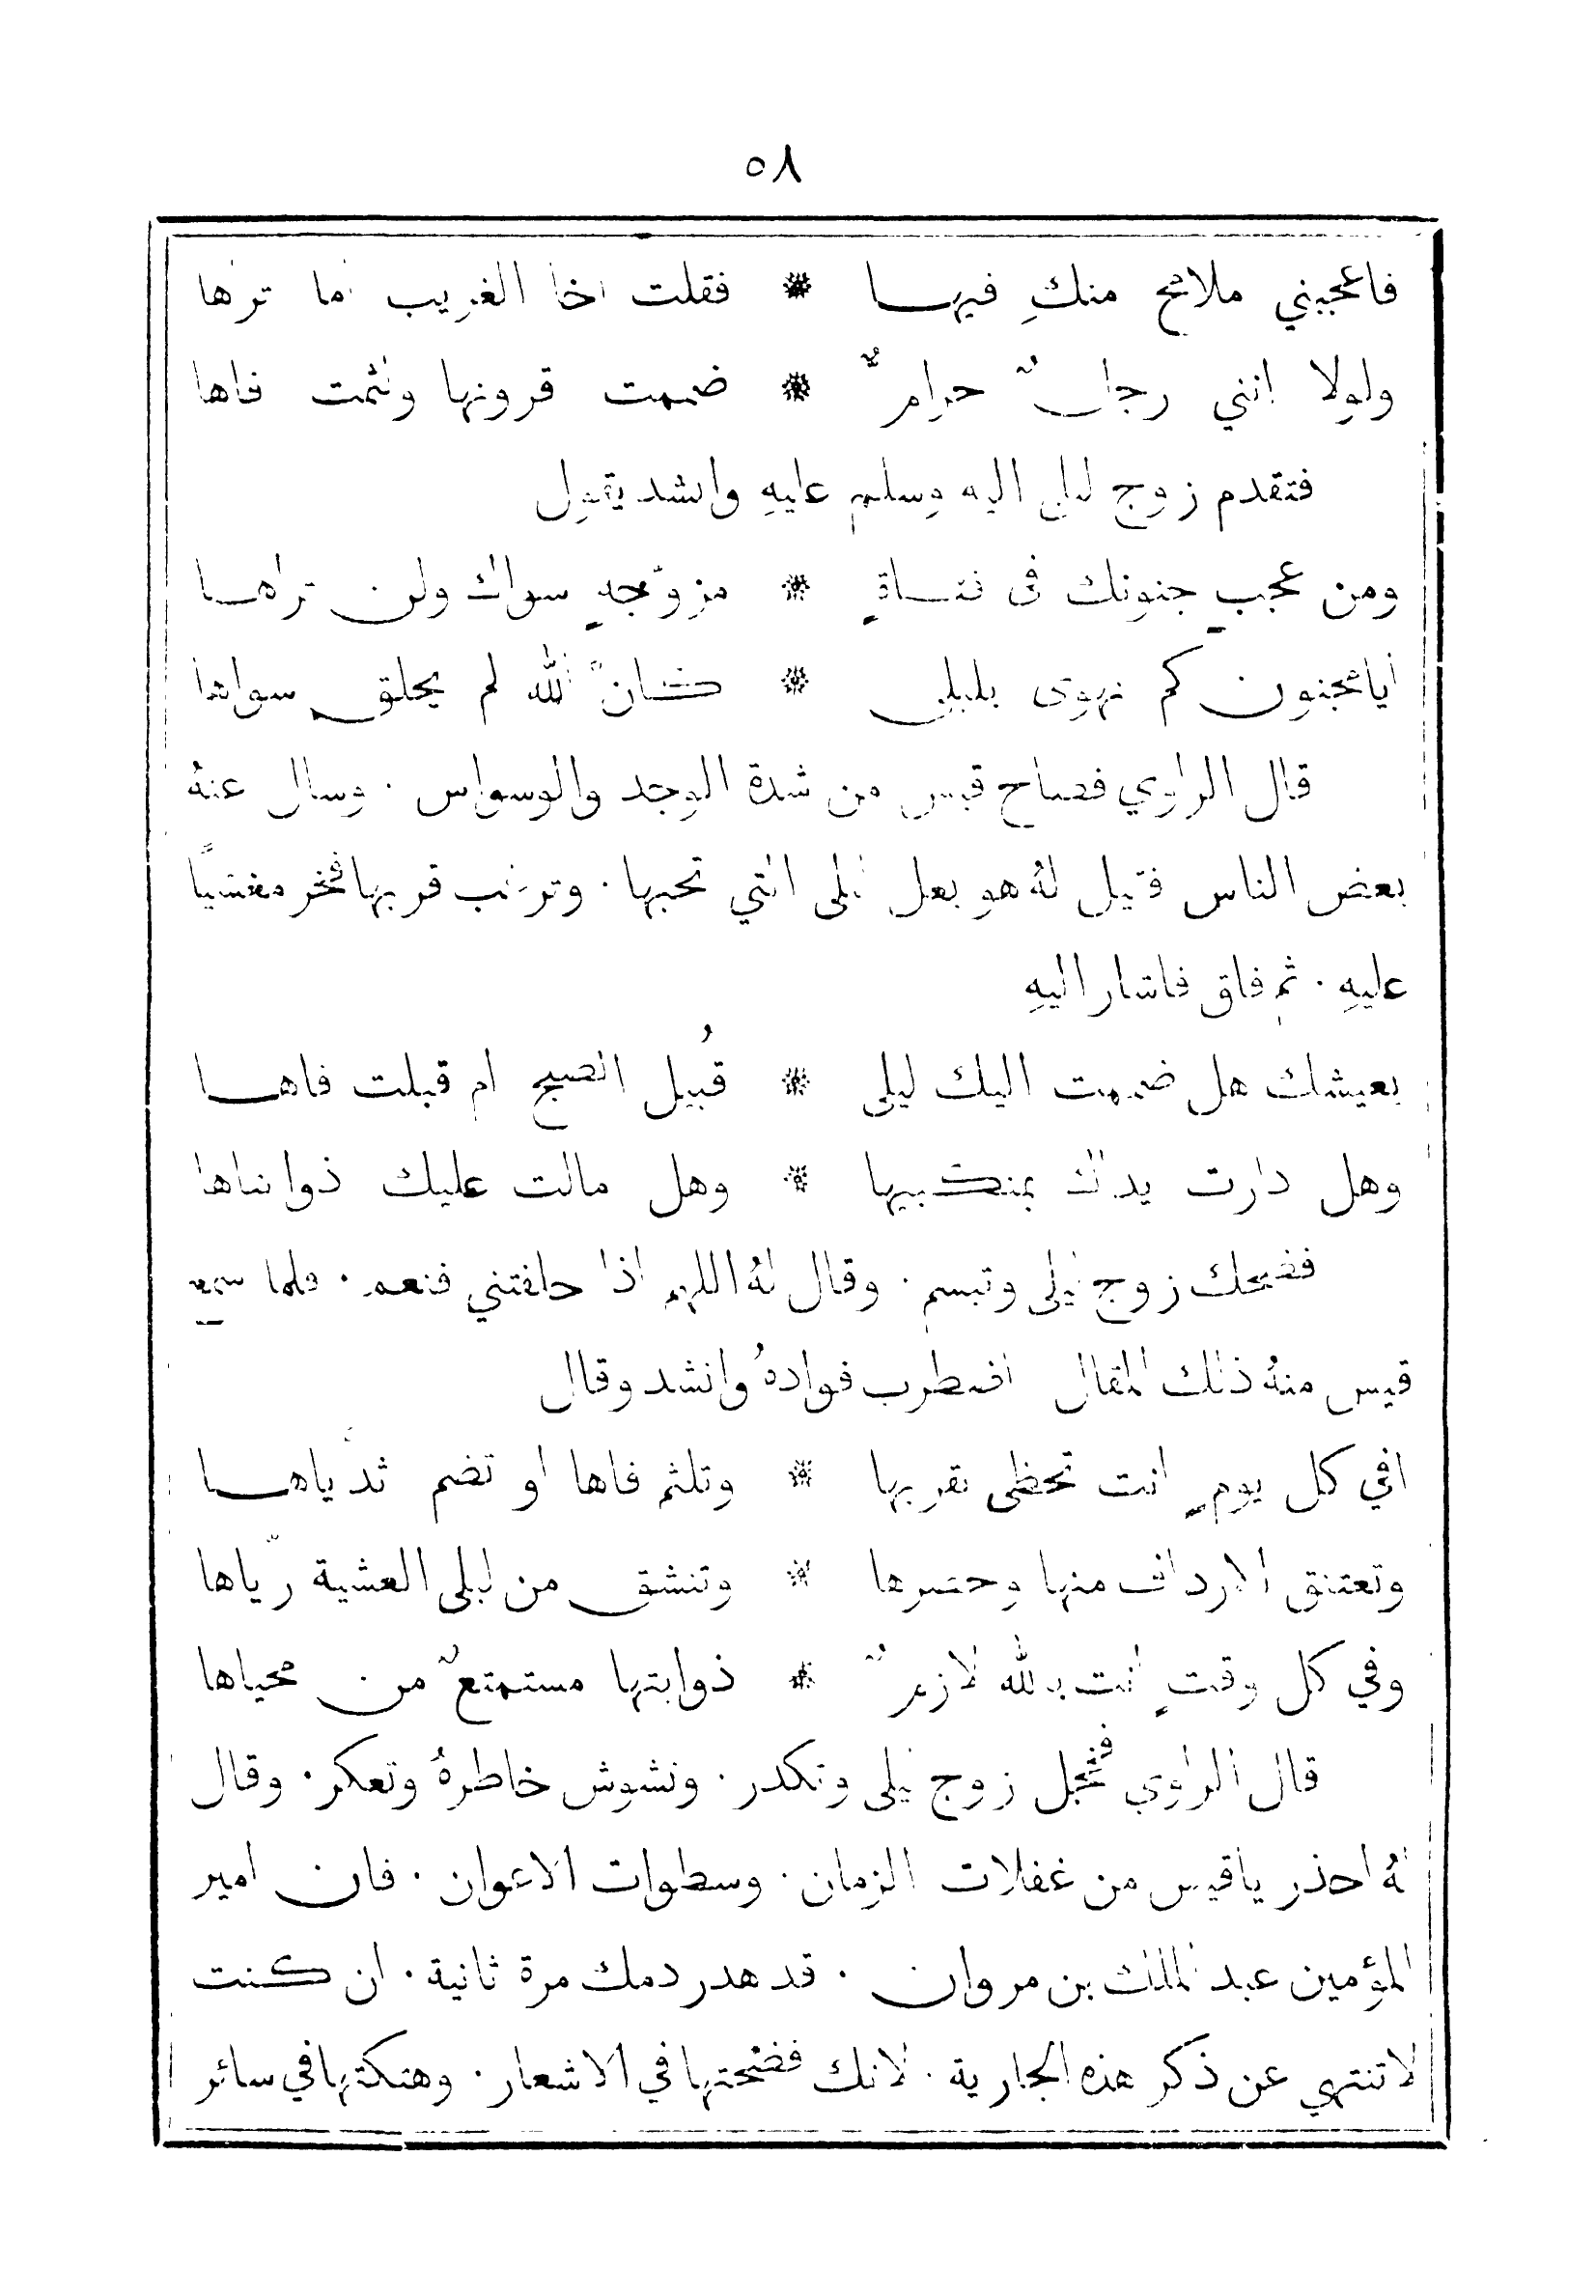 ٥٨
فاعجبني ملامح منكِ فيها * فقلت اخا الغريب اما تراها
ولولا انني رجلٌ حرامٌ * ضممت قرونها ولثمت فاها
فتقدم زوج ليلى اليه وسلم عليهِ وانشد يقول
ومن عجبٍ جنونك فى فتاةٍ * مزوّجةٍ سواك ولن تراها
ايامجنون كم تهوى بليلى * كأنَّ الله لم يخلق سواها
قال الراوي فصاح قيس من شدة الوجد والوسواس . وسال عنهُ
بعض الناس فقيل لهُ هو بعل ليلى التي تحبها . وترغب قربها فخر مغشيًا
عليهِ . ثم فاق فاشار اليهِ
بعيشك هل ضممت اليك ليلى * قُبيل الصبح ام قبلت فاها
وهل دارت يداك بمنكبيها * وهل مالت عليك ذوائباها
فضحك زوج ليلى وتبسم . وقال لهُ اللهم اذا حلفتني فنعم . فلما سمع
قيس منهُ ذلك المقال اضطرب فوادهُ وانشد وقال
افي كل يومٍ انت تحظى بقربها * وتلثم فاها او تضم ثدياها
وتعتنق الارداف منها وخصرها * وتنشق من ليلى العشية ريّاها
وفي كل وقتٍ انت بالله لازمٌ * ذوابتها مستمتعٌ من محياها
قال الراوي فخجل زوج ليلى وتكدر . وتشوش خاطرهُ وتعكر . وقال
لهُ احذر ياقيس من غفلات الزمان . وسطوات الاعوان . فان امير
المؤمين عبد الملك بن مروان . قد هدر دمك مرة ثانية . ان كنت
لاتنتهي عن ذكر هذه الجارية . لانك فضحتها في الاشعار . وهتكتها في سائر